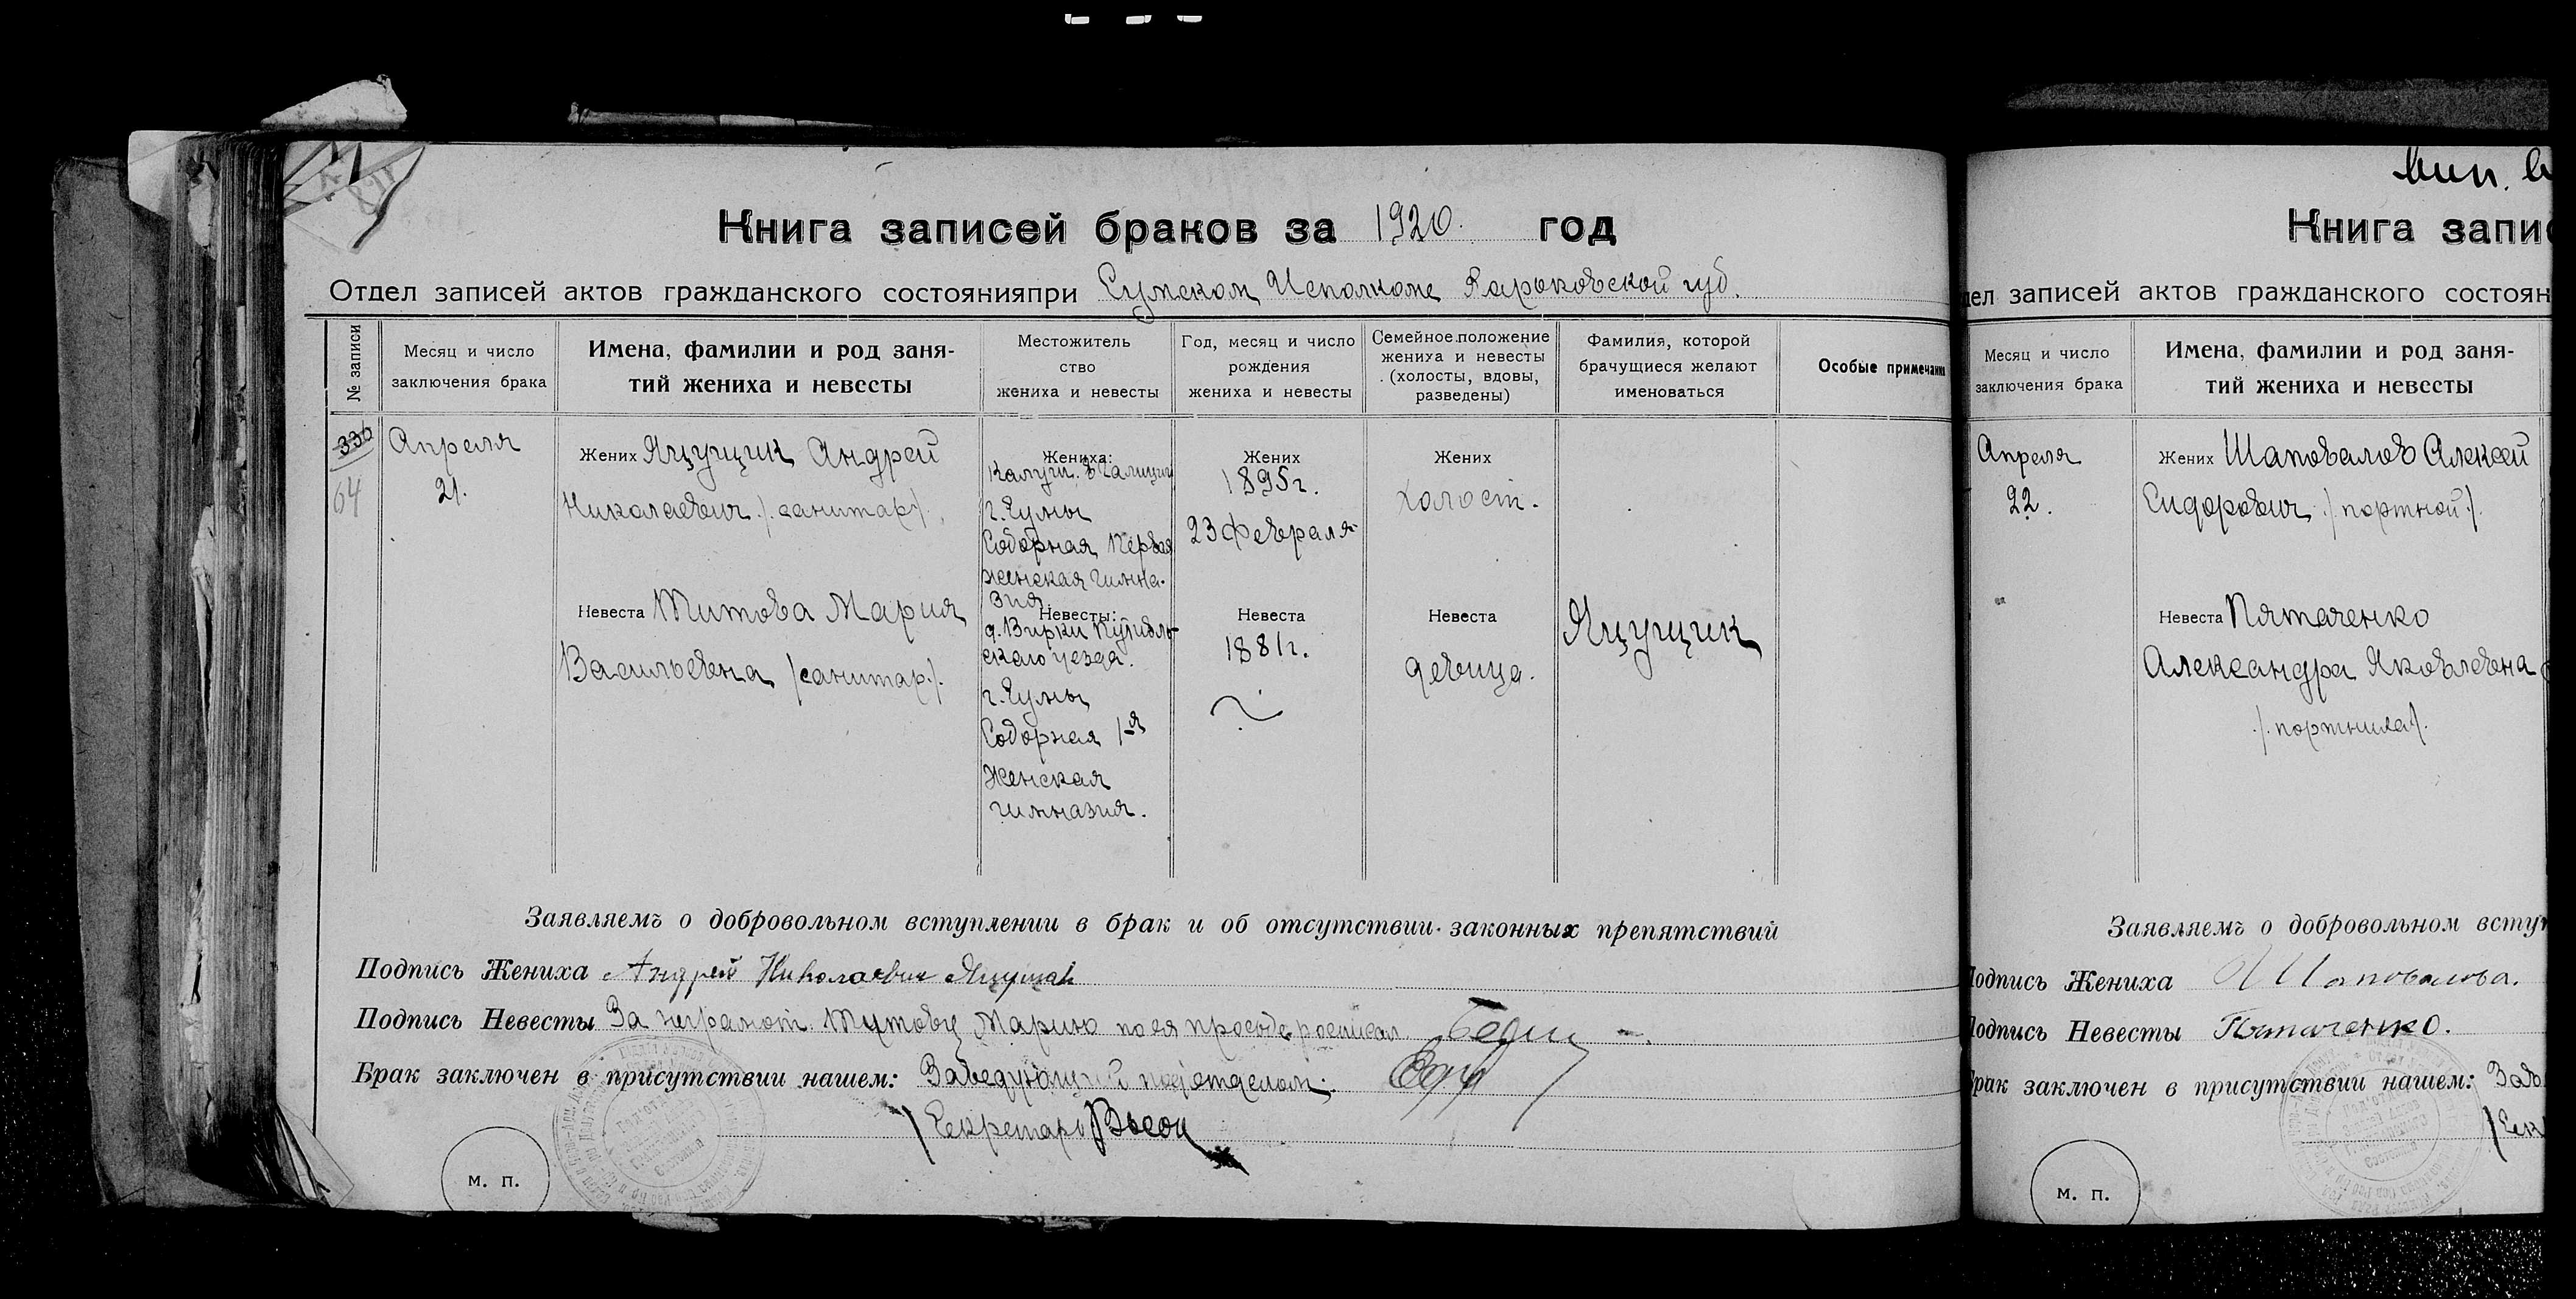 Книга записей браков за 1920. год
Отдел записей актов гражданского состоянияпри Сумском Исполкоме Харьковской губ.
№ записи
Месяц и число
заключения брака
Имена, фамилии и род заня-
тий жениха и невесты
Местожитель
ство
жениха и невесты
Год, месяц и число
рождения
жениха и невесты
Семейное положение
жениха и невесты
(холосты, вдовы,
разведены)
Фамилия, которой
брачущиеся желают
именоваться
Особые примечания
336
64
Апреля
21.
Жених Яцущик Андрей
Николаевич /санитар/.
Невеста Титова Мария
Васильевна /санитар/.
Жениха:
г. Сумы
Соборная Первая
женская гимна-
зия
Невесты:
д. Вирки Путивль-
скаго уезда.
г. Сумы
Соборная 1-я
Женская
гимназия.
Жених
1895г.
23 февраля
Невеста
1881г.
Жених
холост.
Невеста
девица.
Яцущик
Заявляемъ о добровольном вступлении в брак и об отсутствии законных препятствий
Подпись Жениха Андрей Николаевич Яцущик
Подпись Невесты За неграмот. Титову Марию по ея просьбе росписал
Брак заключен в присутствии нашем: Заведующий подотделом:
/Секретарь
м. п.
Книга запис
дел записей актов гражданского состоян
Месяц и число
заключения брака
Имена, фамилии и род заня-
тий жениха и невесты
Апреля
22.
Жених Шаповалов Алексей
Сидорович /портной/.
Невеста Пятаченко
Александра Яковлевна
/портниха/.
Заявляемъ о добровольном всту
Подпись Жениха Шаповалова.
Подпись Невесты Пятаченко.
Брак заключен в присутствии нашем: Заве
/Сек
м. п.